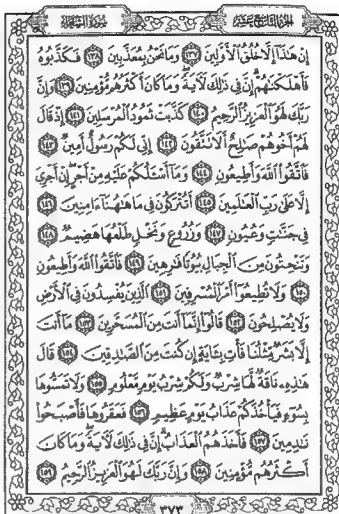 الجزء التاسع عشر سورة الشعراء
إِنْ هَٰذَآ إِلَّا خُلُقُ ٱلْأَوَّلِينَ ١٣٧ وَمَا نَحْنُ بِمُعَذَّبِينَ ١٣٨ فَكَذَّبُوهُ
فَأَهْلَكْنَٰهُمْ إِنَّ فِى ذَٰلِكَ لَءَايَةً وَمَا كَانَ أَكْثَرُهُم مُّؤْمِنِينَ ١٣٩ وَإِنَّ
رَبَّكَ لَهُوَ ٱلْعَزِيزُ ٱلرَّحِيمُ ١٤٠ كَذَّبَتْ ثَمُودُ ٱلْمُرْسَلِينَ ١٤١ إِذْ قَالَ
لَهُمْ أَخُوهُمْ صَٰلِحٌ أَلَا تَتَّقُونَ ١٤٢ إِنِّى لَكُمْ رَسُولٌ أَمِينٌ ١٤٣
فَٱتَّقُوا۟ ٱللَّهَ وَأَطِيعُونِ ١٤٤ وَمَآ أَسْـَٔلُكُمْ عَلَيْهِ مِنْ أَجْرٍ إِنْ أَجْرِىَ
إِلَّا عَلَىٰ رَبِّ ٱلْعَٰلَمِينَ ١٤٥ أَتُتْرَكُونَ فِى مَا هَٰهُنَآ ءَامِنِينَ ١٤٦
فِى جَنَّٰتٍ وَعُيُونٍ ١٤٧ وَزُرُوعٍ وَنَخْلٍ طَلْعُهَا هَضِيمٌ ١٤٨
وَتَنْحِتُونَ مِنَ ٱلْجِبَالِ بُيُوتًا فَٰرِهِينَ ١٤٩ فَٱتَّقُوا۟ ٱللَّهَ وَأَطِيعُونِ
١٥٠ وَلَا تُطِيعُوٓا۟ أَمْرَ ٱلْمُسْرِفِينَ ١٥١ ٱلَّذِينَ يُفْسِدُونَ فِى ٱلْأَرْضِ
وَلَا يُصْلِحُونَ ١٥٢ قَالُوٓا۟ إِنَّمَآ أَنتَ مِنَ ٱلْمُسَحَّرِينَ ١٥٣ مَآ أَنتَ
إِلَّا بَشَرٌ مِّثْلُنَا فَأْتِ بِـَٔايَةٍ إِن كُنتَ مِنَ ٱلصَّٰدِقِينَ ١٥٤ قَالَ
هَٰذِهِۦ نَاقَةٌ لَّهَا شِرْبٌ وَلَكُمْ شِرْبُ يَوْمٍ مَّعْلُومٍ ١٥٥ وَلَا تَمَسُّوهَا
بِسُوٓءٍ فَيَأْخُذَكُمْ عَذَابُ يَوْمٍ عَظِيمٍ ١٥٦ فَعَقَرُوهَا فَأَصْبَحُوا۟
نَٰدِمِينَ ١٥٧ فَأَخَذَهُمُ ٱلْعَذَابُ إِنَّ فِى ذَٰلِكَ لَءَايَةً وَمَا كَانَ
أَكْثَرُهُم مُّؤْمِنِينَ ١٥٨ وَإِنَّ رَبَّكَ لَهُوَ ٱلْعَزِيزُ ٱلرَّحِيمُ ١٥٩
٣٧٣